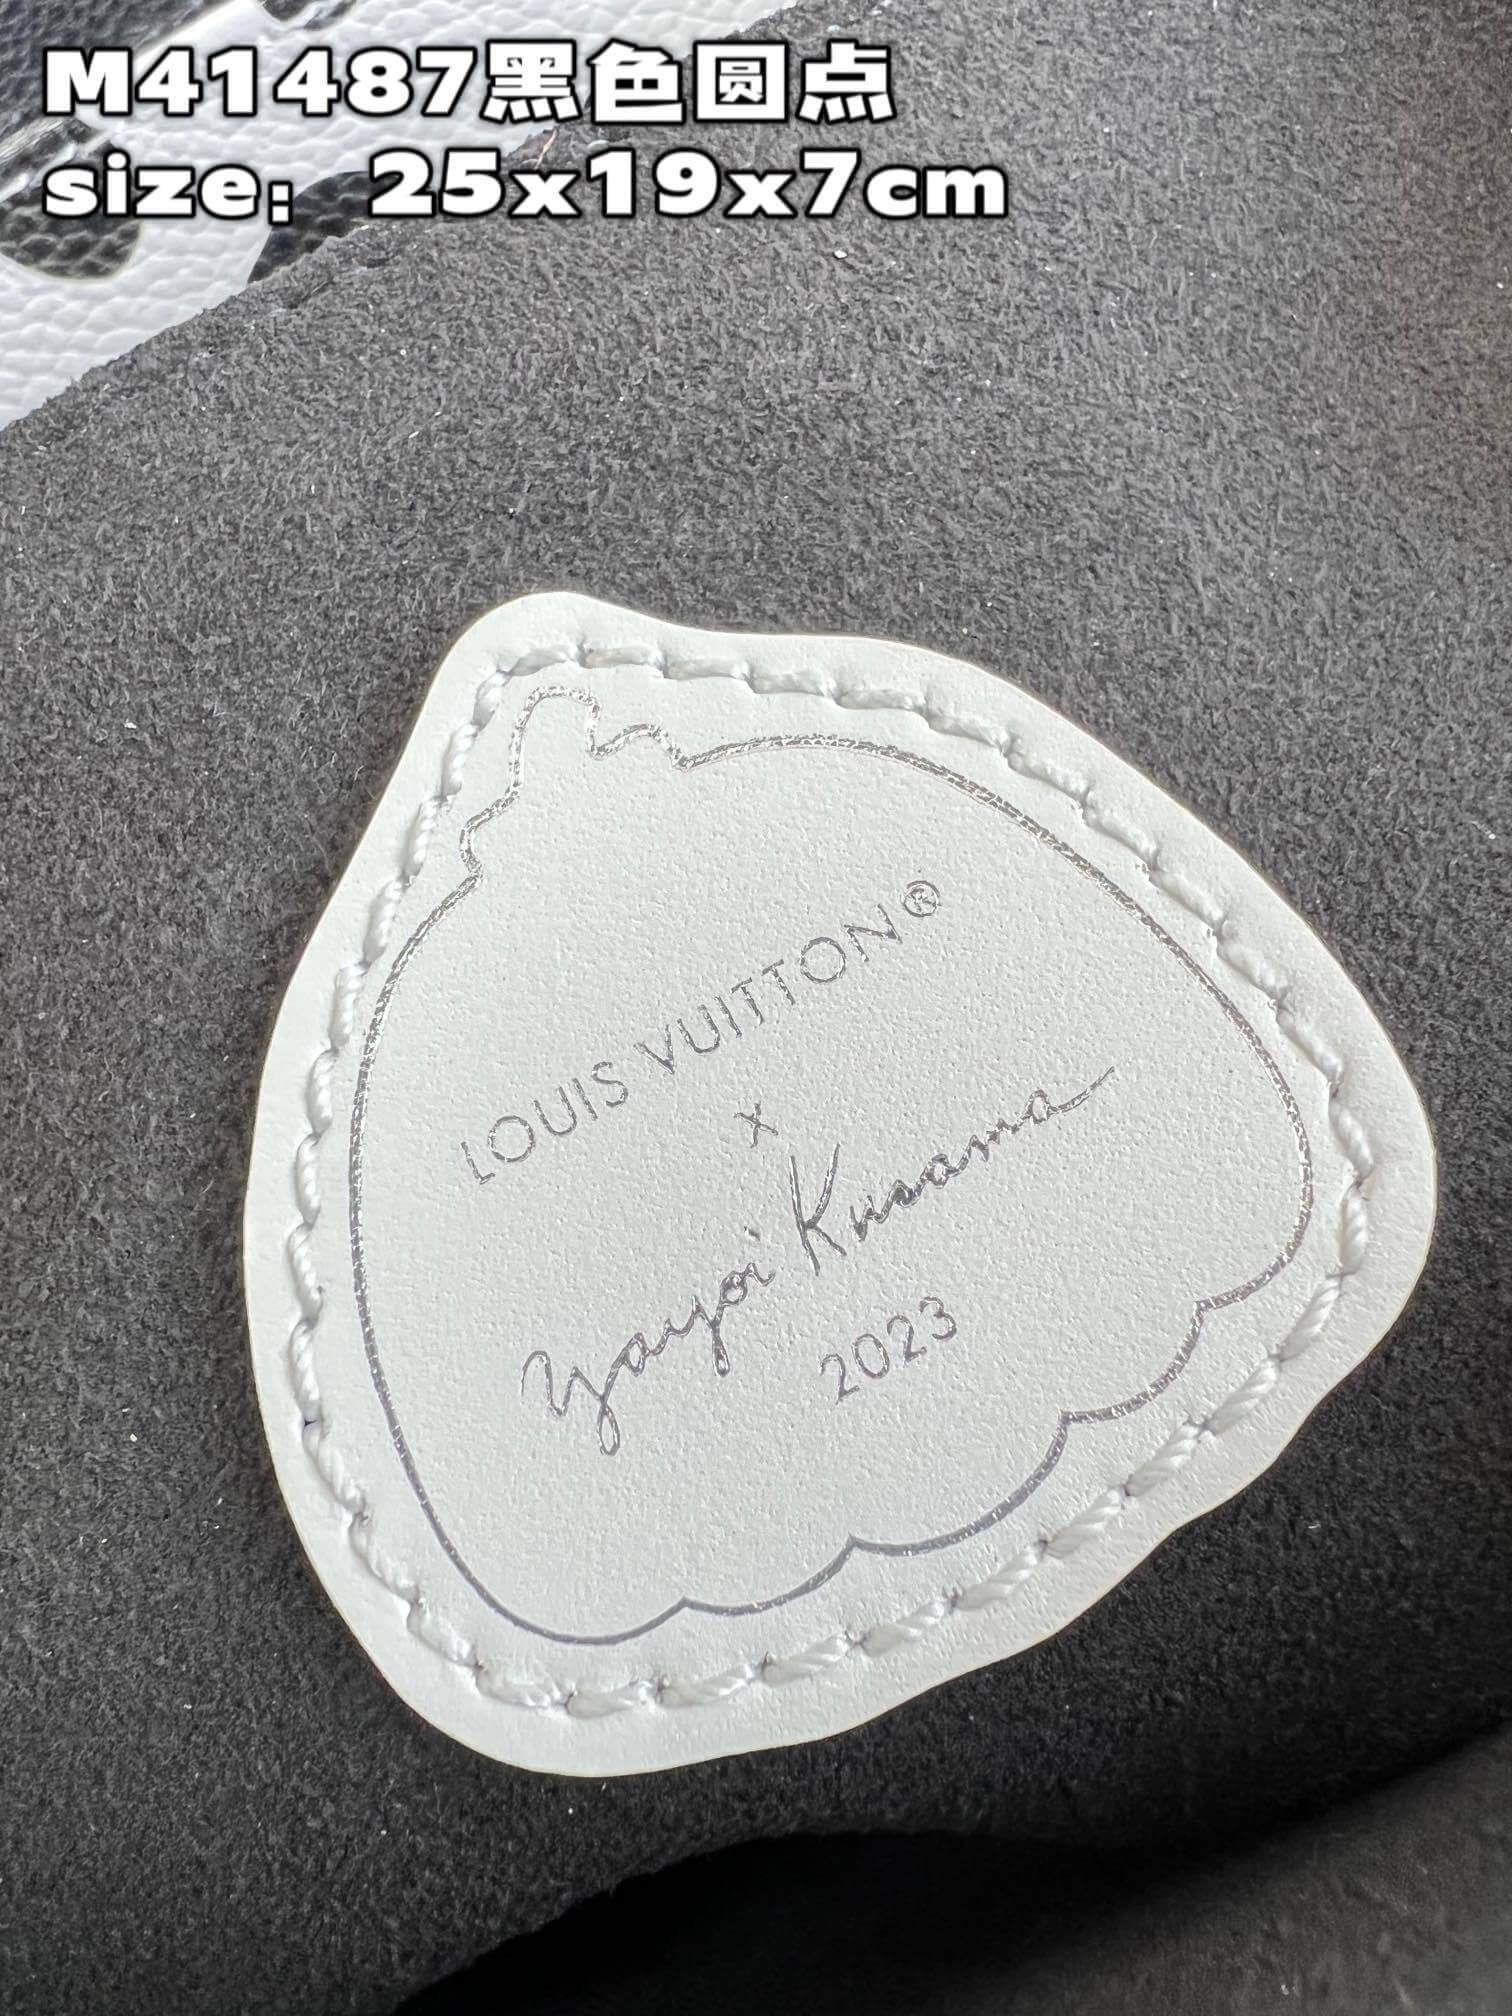 M41487黑色圆点
size：25x19x7cm
LOUIS VUITTON®
x
Yayoi Kusama
2023